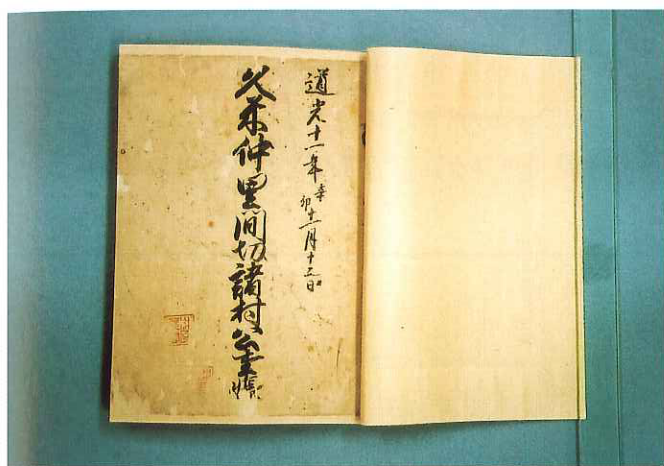 道光十一年辛卯十月十三日
久米仲里間切諸村公事帳